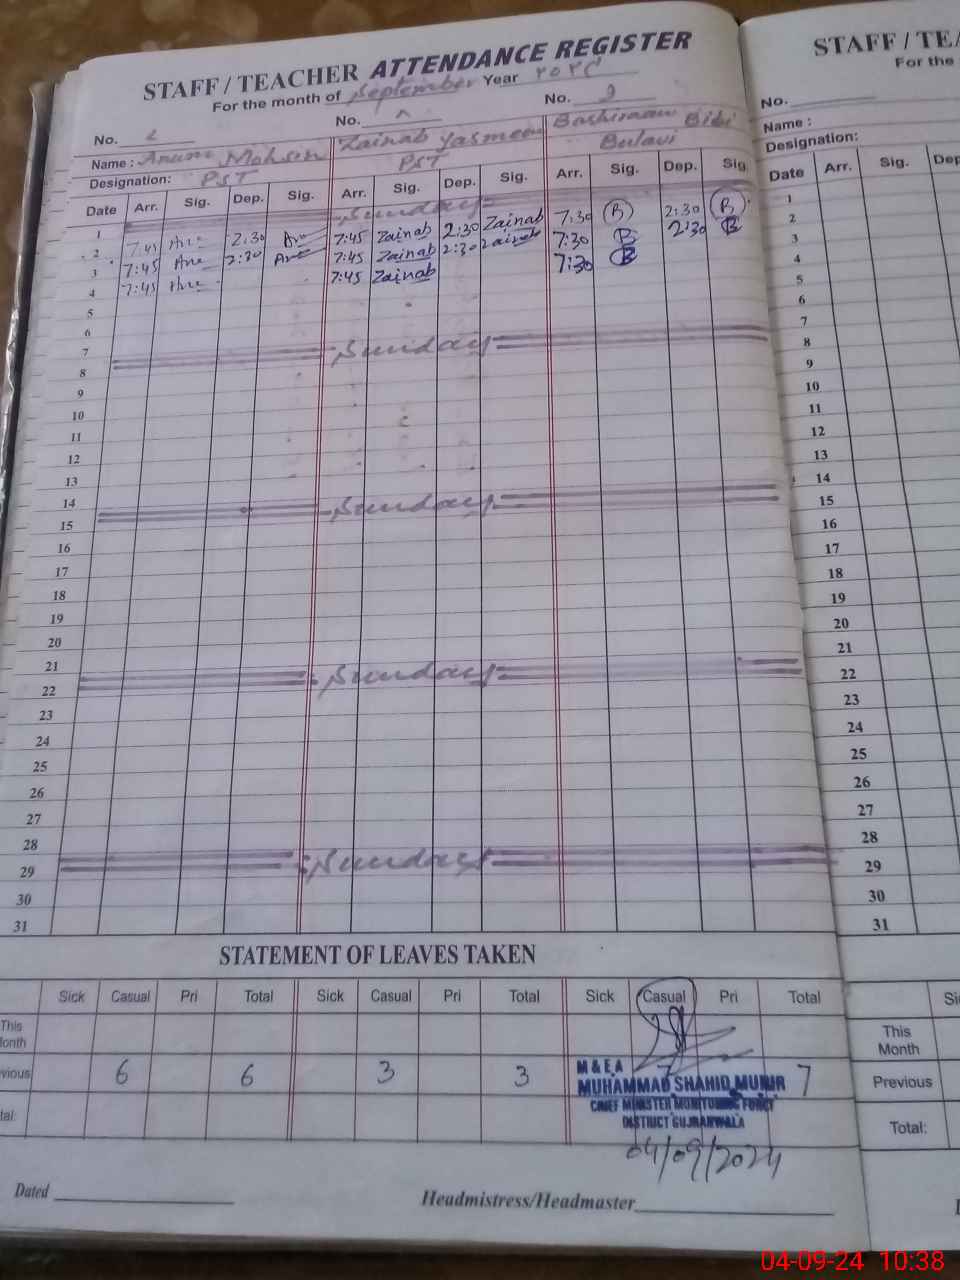 STAFF / TEACHER ATTENDANCE REGISTER
For the month of September Year ۲۰۲۴
No. No. No. 9
Name : Anum Mohsin Zainab Yasmeen Bashiraan Bibi
Designation: PST PST Bulavi
Date Arr. Sig. Dep. Sig. Arr. Sig. Dep. Sig. Arr. Sig. Dep. Sig.
1 Sunday
2 7:45 2:30 7:45 Zainab 2:30 Zainab 7:30 B 2:30 B
3 7:45 2:30 7:45 Zainab 2:30 Zainab 7:30 B 2:30 B
4 7:45 7:45 Zainab 7:30 B
5
6
7
8 Sunday
9
10
11
12
13
14
15 Sunday
16
17
18
19
20
21
22 Sunday
23
24
25
26
27
28
29 Sunday
30
31
STATEMENT OF LEAVES TAKEN
Sick Casual Pri Total Sick Casual Pri Total Sick Casual Pri Total
This
Month
vious 6 6 3 3 7 7
tal:
M & E A
MUHAMMAD SHAHID MUNIR
CHIEF MINISTER MONITORING FORCE
DISTRICT GUJRANWALA
04/09/2024
Dated Headmistress/Headmaster
STAFF / TEA
For the
No.
Name :
Designation:
Date Arr. Sig. Dep
1
2
3
4
5
6
7
8
9
10
11
12
13
14
15
16
17
18
19
20
21
22
23
24
25
26
27
28
29
30
31
Si
This
Month
Previous
Total:
04-09-24 10:38